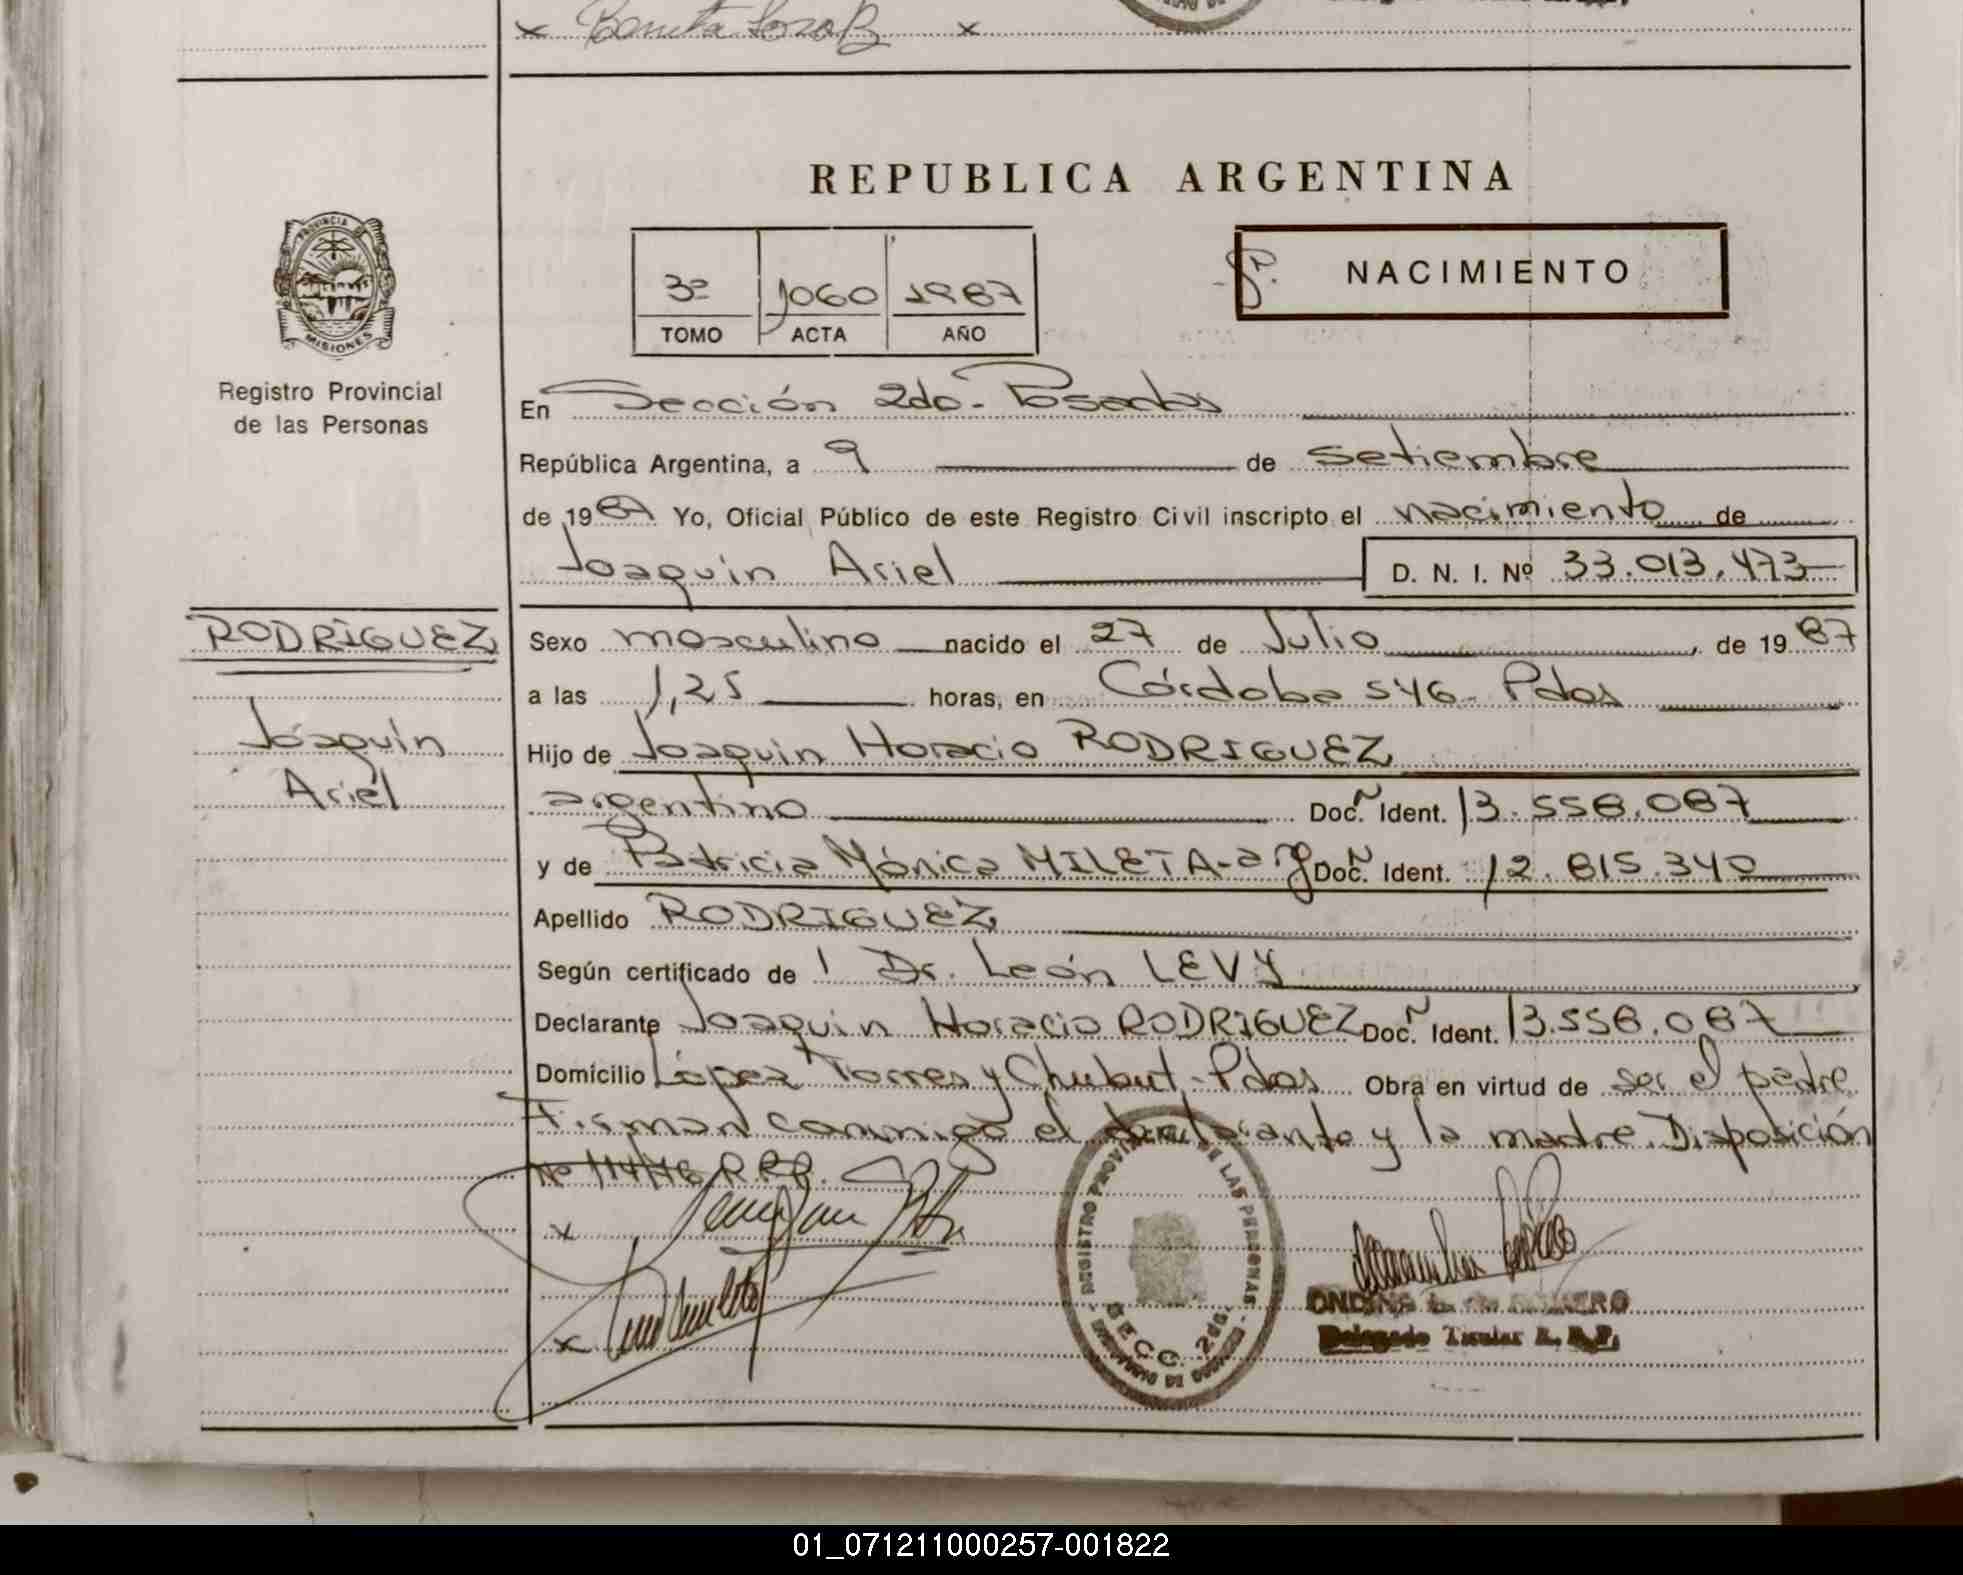 x Benita x
REPUBLICA ARGENTINA
PROVINCIA DE
MISIONES
Registro Provincial
de las Personas
3º 1060 1987
TOMO ACTA AÑO
NACIMIENTO
En Sección 2da.- Posadas
República Argentina, a 9 de setiembre
de 1987 Yo, Oficial Público de este Registro Civil inscripto el nacimiento de
Joaquín Ariel D. N. I. Nº 33.013.473
RODRIGUEZ
Joaquín
Ariel
Sexo masculino nacido el 27 de Julio, de 1987
a las 1,25 horas, en Córdoba 546- Pdas
Hijo de Joaquin Horacio RODRIGUEZ
argentino Doc. Ident. 13.558.087
y de Patricia Mónica MILETA-arg Doc. Ident. 12.815.340
Apellido RODRIGUEZ
Según certificado de l Dr. León LEVY
Declarante Joaquin Horacio RODRIGUEZ Doc. Ident. 13.558.087
Domicilio López Torres y Chubut-Pdas Obra en virtud de ser el padre
Firman conmigo el declarante y la madre. Disposición
Nº 114/76 R.P.P.
x
x
REGISTRO PROVINCIAL DE LAS PERSONAS
SECC. 2da.
ROMERO
Delegado Titular R. P. P.
01_071211000257-001822